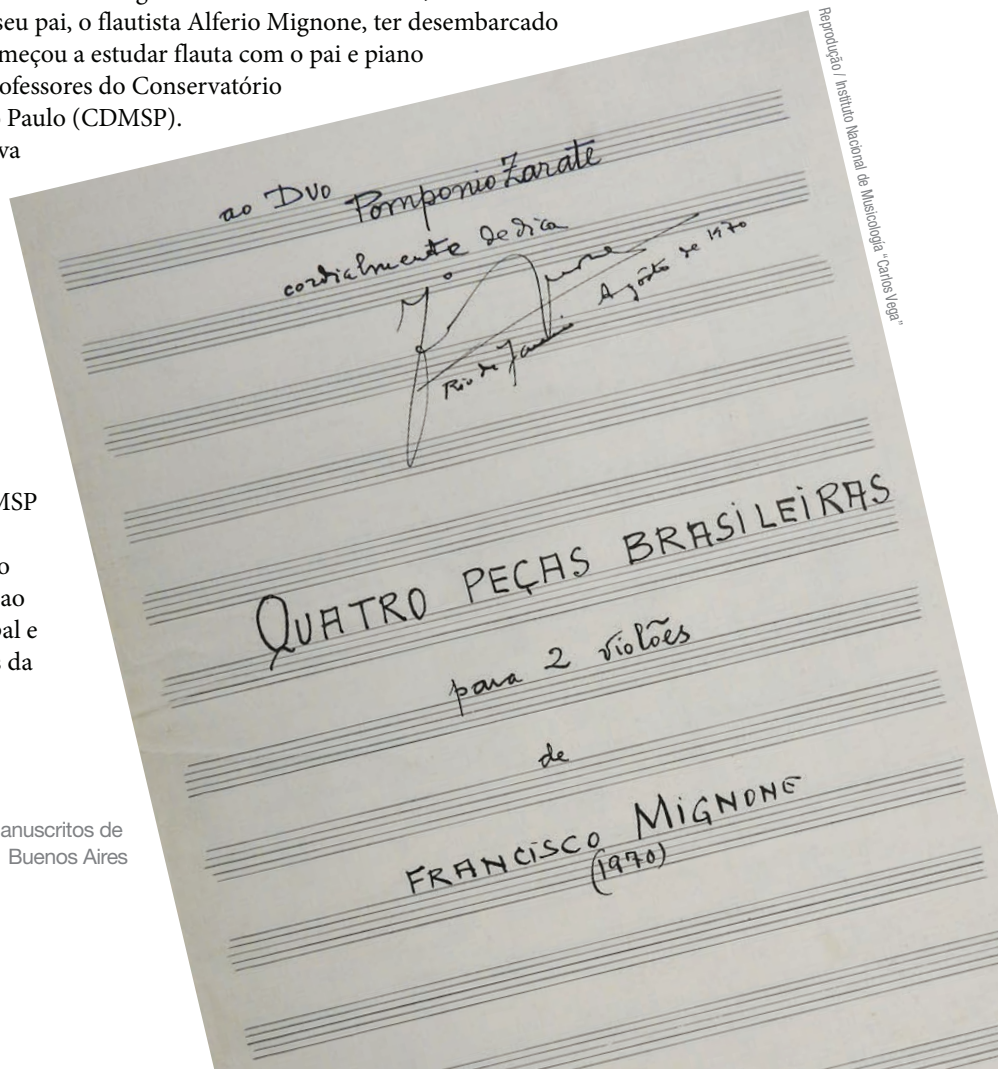 seu pai, o flautista Alferio Mignone, ter desembarcado
meçou a estudar flauta com o pai e piano
ofessores do Conservatório
Paulo (CDMSP).
va
MSP
o
ao
pal e
s da
anuscritos de
Buenos Aires
Reprodução / Instituto Nacional de Musicología “Carlos Vega”
ao DVO Pomponio Zarate
cordialmente dedica
Rio de Janeiro Agôsto de 1970
QUATRO PEÇAS BRASILEIRAS
para 2 violões
de
FRANCISCO MIGNONE
(1970)